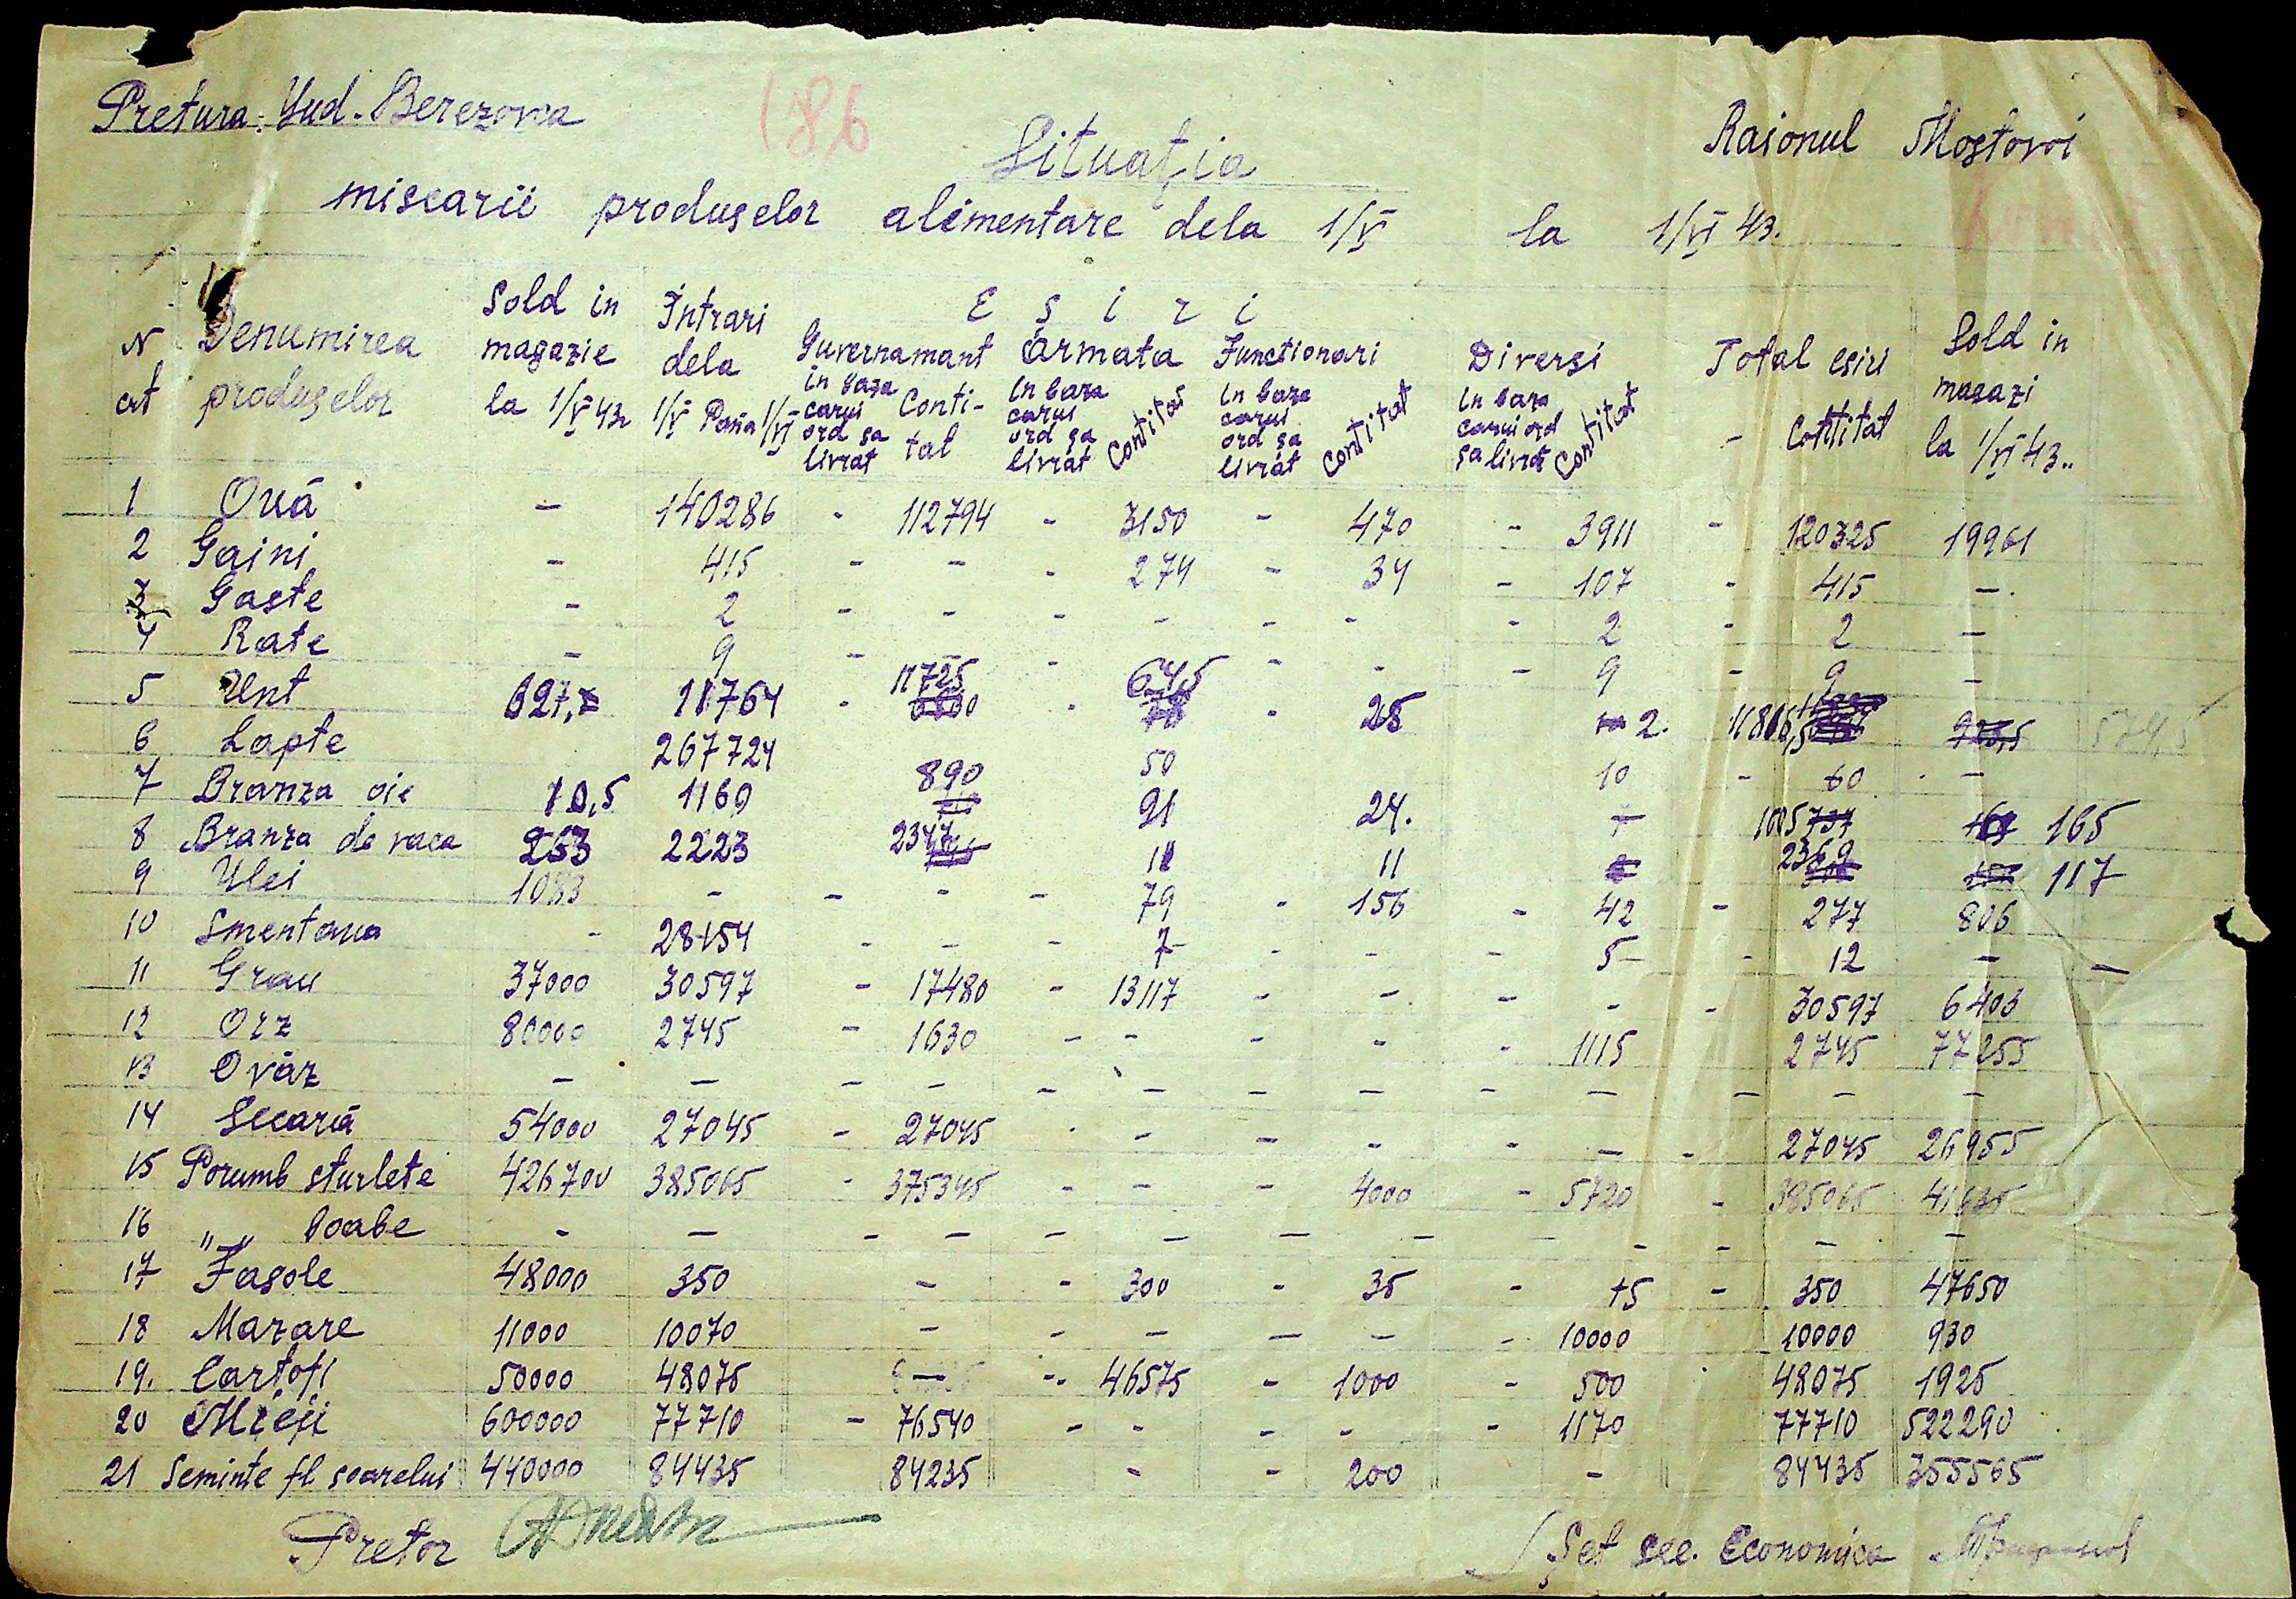 Pretura. Jud. Berezovca
186
Raionul Mostovoi
Situația
miscarii produselor alimentare dela 1/V la 1/VI 43.
N crt Denumirea produselor Sold in magazie la 1/V 43 Intrari dela 1/V Pana 1/VI Esiri Total esiri Contitat Sold in magazi la 1/VI 43..
Guvernamant in baza carui ord sa livrat Contitat Armata In baza carui ord sa livrat Contitat Functionari In baza carui ord sa livrat Contitat Diversi In baza carui ord sa livrat Contitat
1 Ouă - 140286 - 112794 - 3150 - 470 - 3911 - 120325 19961
2 Gaini - 415 - - - 274 - 34 - 107 - 415 -.
3 Gaste - 2 - - - - - - - 2 - 2 -
4 Rate - 9 - - - - - - - 9 - 9 -
5 Unt 627, 11764 - 11725 - 64,5 - 25 2. 11816,5 923,5 574,5
6 Lapte 267724 50 10 - 60 -
7 Branza oie 10,5 1169 890 91 24. 7 1005 737 165
8 Branza de vaca 263 2223 2347 11 11 2369 117
9 Ulei 1083 - - - - 79 - 156 - 42 - 277 806
10 Smentana - 28154 - - - 7 - - - 5 - 12 - -
11 Grau 37000 30597 - 17480 - 13117 - - - - - 30597 6403
12 Orz 80000 2745 - 1630 - - - - - 1115 2745 77255
13 Ovăz - - - - - - - - - - - - -
14 Secară 54000 27045 - 27045 - - - - - - 27045 26955
15 Porumb sturlete 426700 385065 - 375345 - - - 4000 - 5720 - 385065 41635
16 „ „ boabe - - - - - - - - - - - - -
17 Fasole 48000 350 - - 300 - 35 - 15 - 350 47650
18 Mazare 11000 10070 - - - - - - 10000 10000 930
19. Cartofi 50000 48075 - - 46575 - 1000 - 500 48075 1925
20 Meiji 600000 77710 - 76540 - - - - - 1170 77710 522290
21 Seminte fl soarelui 440000 84435 84235 - - 200 - 84435 355565
Pretor
Șef sec. Economica